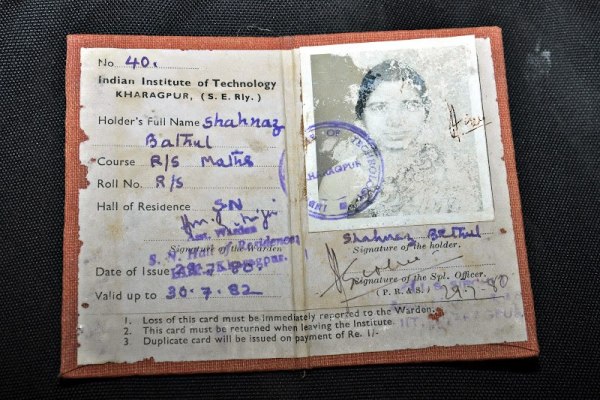 No. 40.
Indian Institute of Technology
KHARAGPUR, (S. E. Rly.)
Holder's Full Name Shahnaz
Bathul
Course R/S Maths
Roll No. R/S
Hall of Residence SN
Asst. Warden
Signature of the Warden
S. N. Hall of Residence
Kharagpur.
Date of Issue 7. 80.
Valid up to 30.7.82
KHARAGPUR
Shahnaz Bathul
Signature of the holder.
Signature of the Spl. Officer.
(P. R. & S.) 29.7.80
1. Loss of this card must be immediately reported to the Warden.
2. This card must be returned when leaving the Institute.
3. Duplicate card will be issued on payment of Re. 1/-